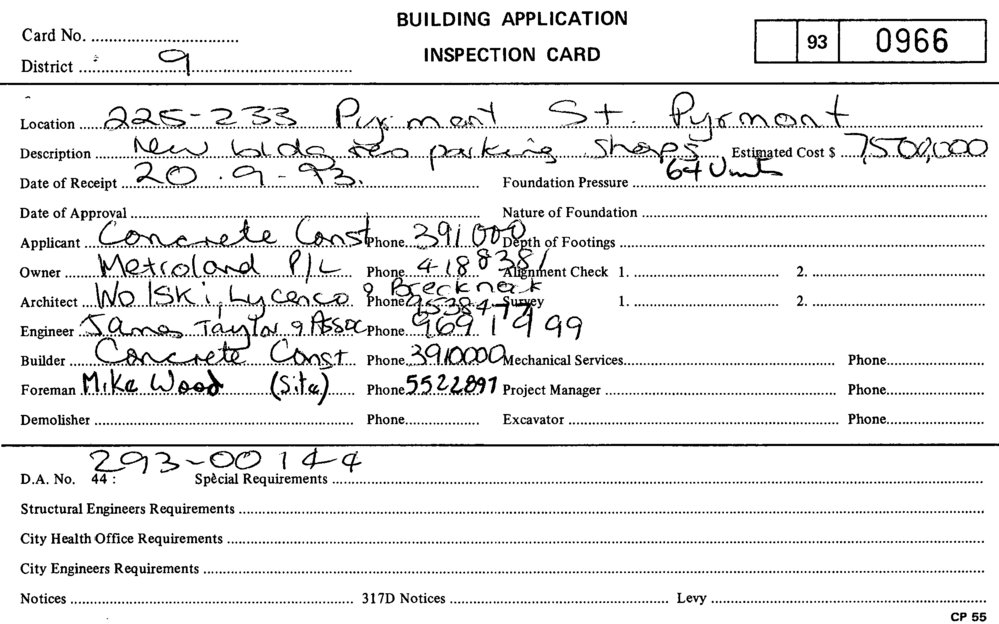 BUILDING APPLICATION
Card No.
INSPECTION CARD
93 0966
District 9
Location 225-233 Pyrmont St. Pyrmont
Description New bldg res parking shops Estimated Cost $ 7,500,000
Date of Receipt 20.9-93. Foundation Pressure 64 Units
Date of Approval Nature of Foundation
Applicant Concrete Const Phone 391 000 Depth of Footings
Owner Metroland P/L Phone 418 8381 Alignment Check 1. 2.
Architect Wolski, Lycenco & Brecknock Phone Survey 1. 2.
Engineer James Taylor & Assoc Phone 969 1999
Builder Concrete Const Phone 3910000 Mechanical Services Phone
Foreman Mike Wood (Site) Phone 5522897 Project Manager Phone
Demolisher Phone Excavator Phone
293-00144
D.A. No. 44: Special Requirements
Structural Engineers Requirements
City Health Office Requirements
City Engineers Requirements
Notices 317D Notices Levy
CP 55